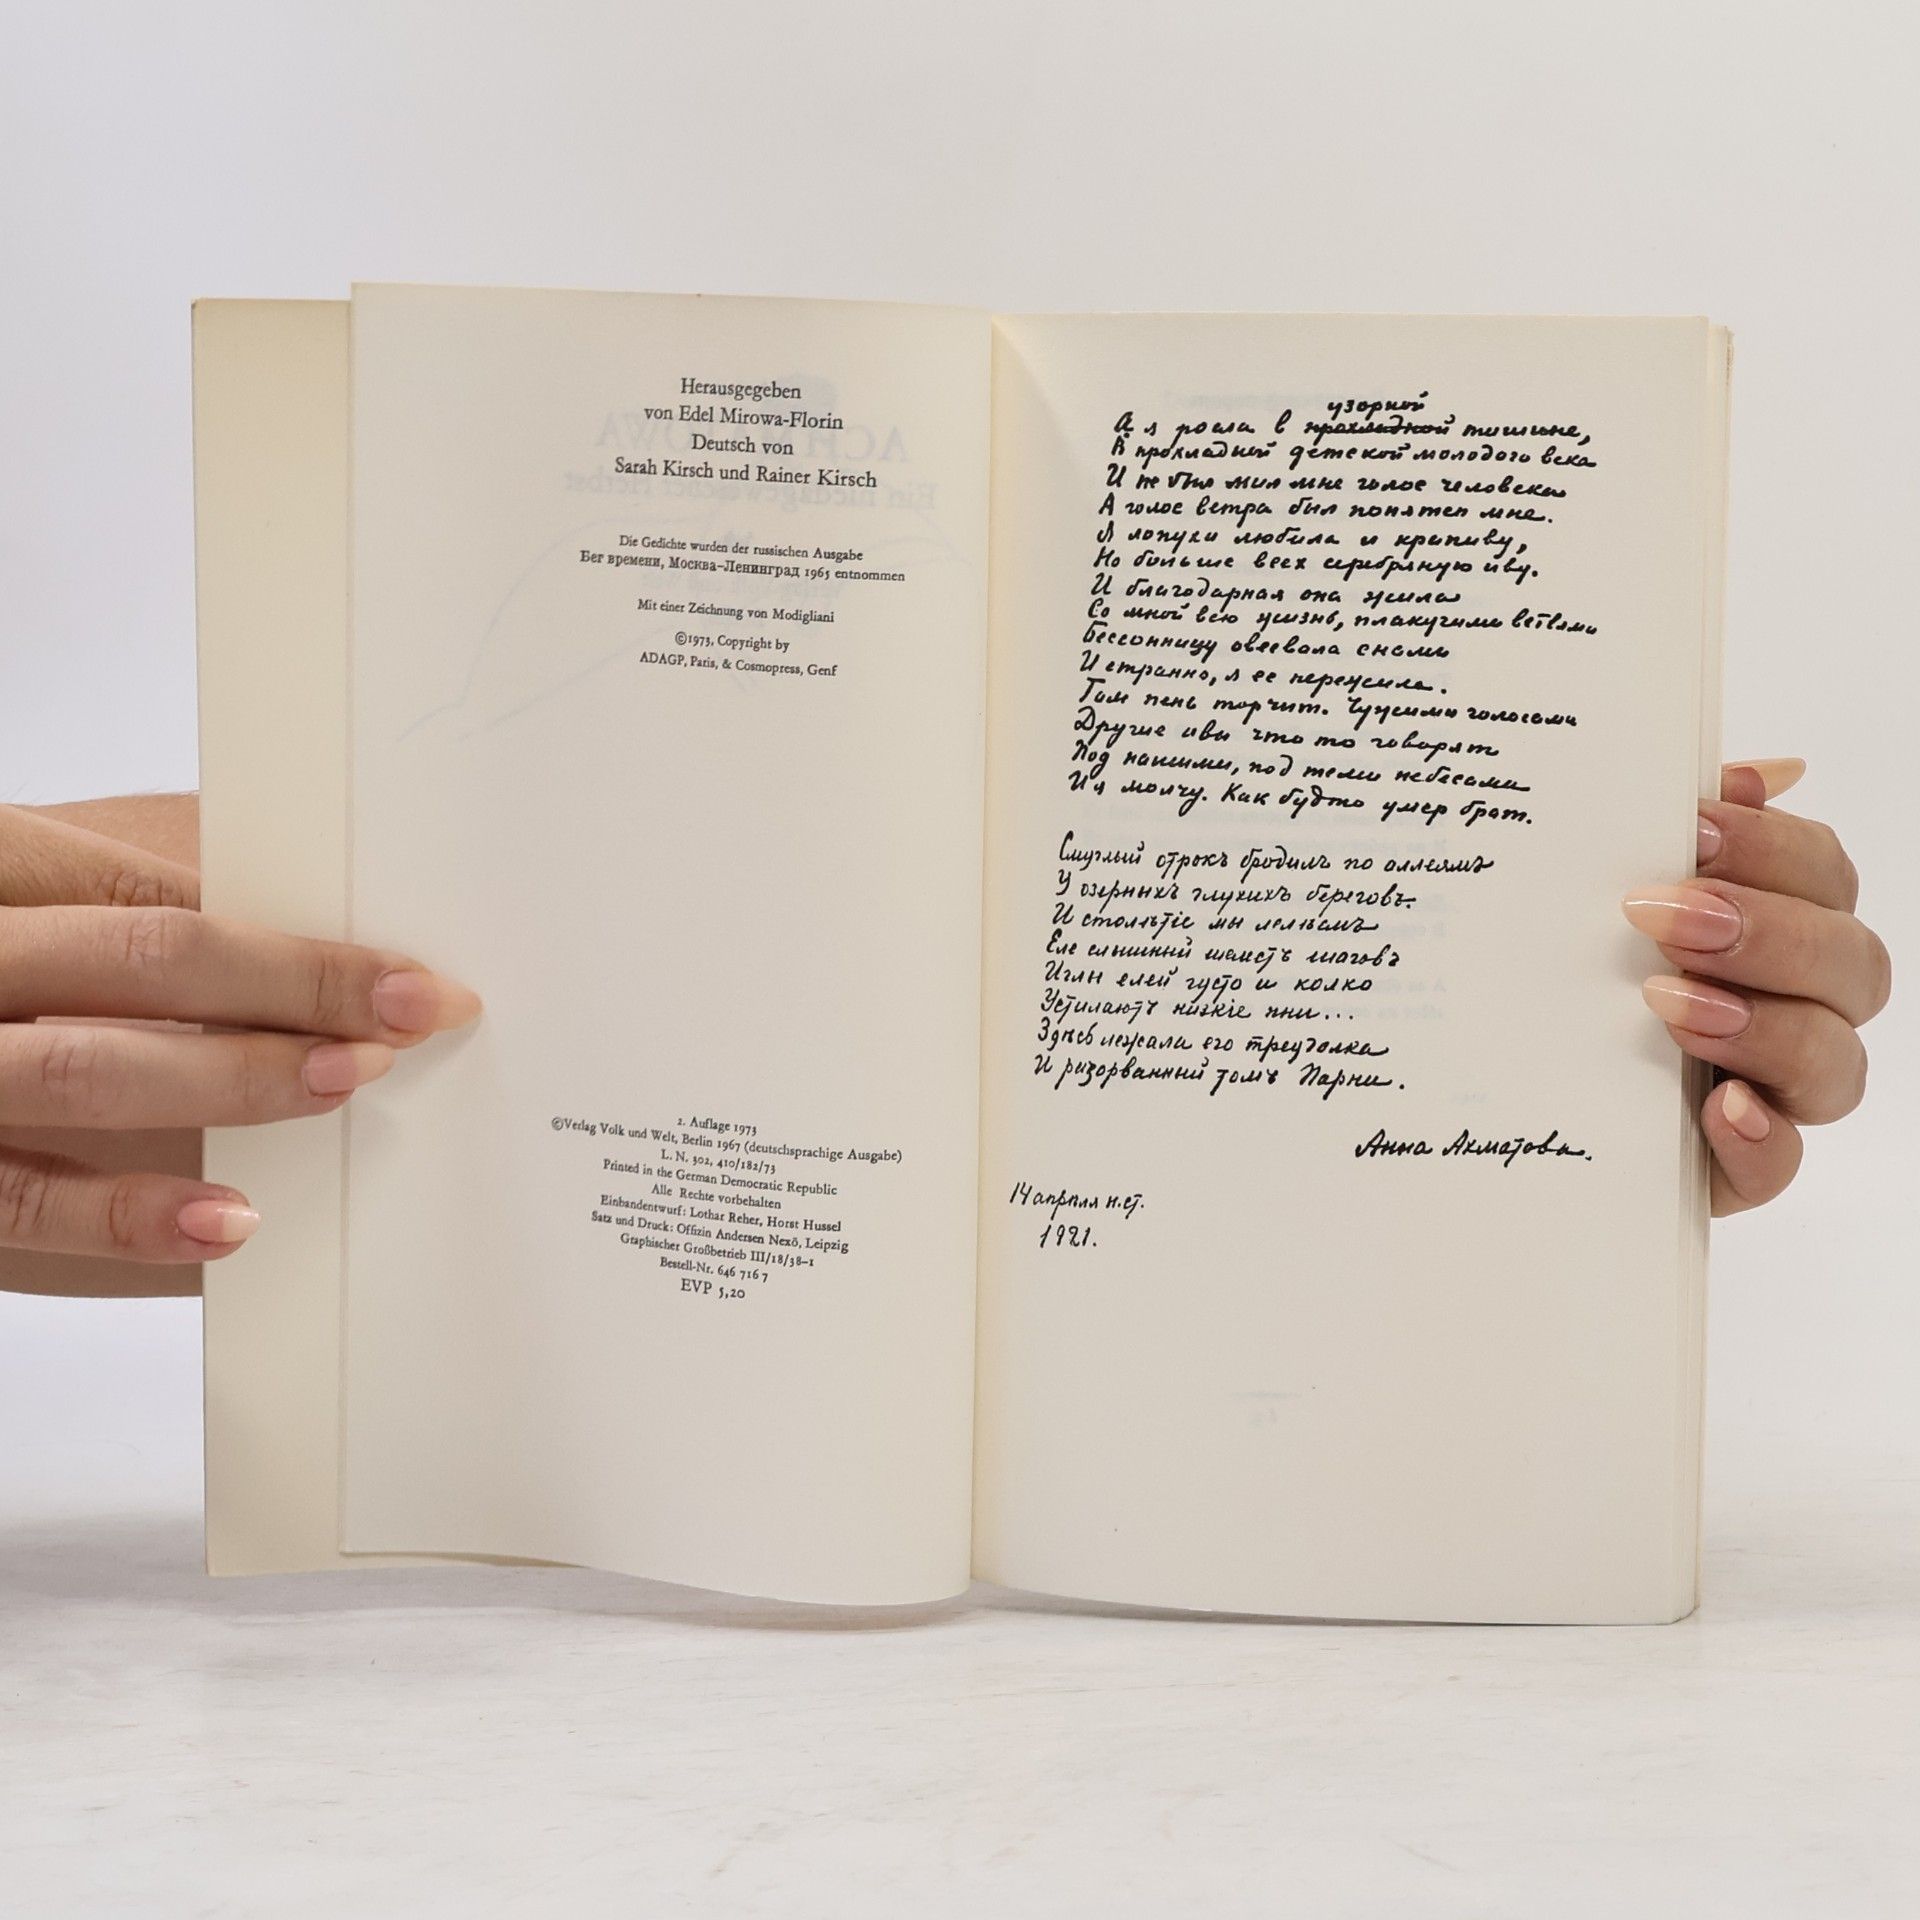 Herausgegeben
von Edel Mirowa-Florin
Deutsch von
Sarah Kirsch und Rainer Kirsch
Die Gedichte wurden der russischen Ausgabe
Бег времени, Москва–Ленинград 1965 entnommen
Mit einer Zeichnung von Modigliani
©1973, Copyright by
ADAGP, Paris, & Cosmopress, Genf
2. Auflage 1973
©Verlag Volk und Welt, Berlin 1967 (deutschsprachige Ausgabe)
L. N. 302, 410/182/73
Printed in the German Democratic Republic
Alle Rechte vorbehalten
Einbandentwurf: Lothar Reher, Horst Hussel
Satz und Druck: Offizin Andersen Nexö, Leipzig
Graphischer Großbetrieb III/18/38-1
Bestell-Nr. 646 716 7
EVP 5,20
узорной
А я росла в прохладной тишине,
В прохладной детской молодого века
И не был мил мне голос человека
А голос ветра был понятен мне.
Я лопухи любила и крапиву,
Но больше всех серебряную иву.
И благодарная она жила
Со мной всю жизнь, плакучими ветвями
Бессонницу овеевала снами
И странно, я ее пережила.
Там пень торчит. Чужими голосами
Другие ивы что то говорят
Под нашими, под теми небесами
И я молчу. Как будто умер брат.
Смуглый отрокъ бродилъ по аллеямъ
У озерныхъ глухихъ береговъ.
И столѣтіе мы лелѣемъ
Еле слышный шелестъ шаговъ
Иглы елей густо и колко
Устилаютъ низкіе пни...
Здѣсь лежала его треуголка
И разорванный томъ Парни.
Анна Ахматова.
14 апрѣля н.ст.
1921.